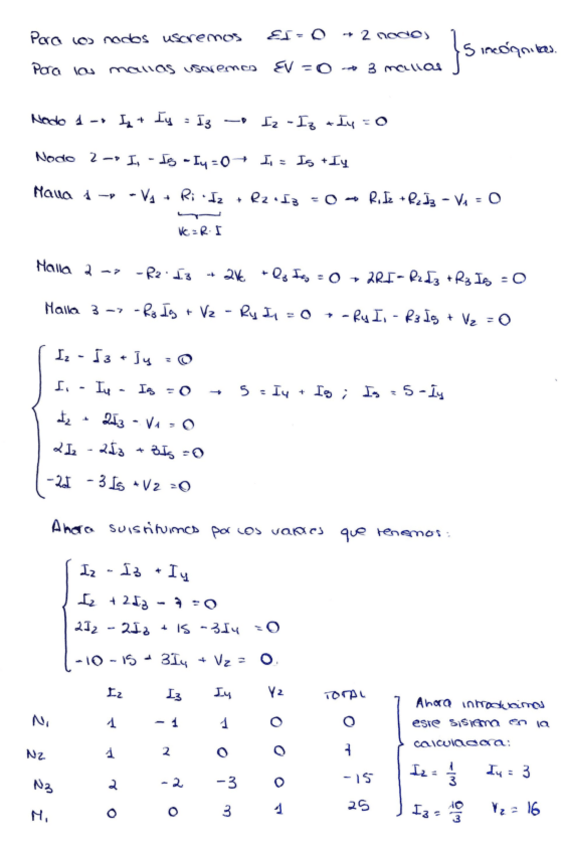 Para los nodos usaremos ΣI = 0 → 2 nodos
Para las mallas usaremos ΣV = 0 → 3 mallas
5 incógnitas.
Nodo 1 → I2 + I4 = I3 → I2 - I3 + I4 = 0
Nodo 2 → I1 - I5 - I4 = 0 → I1 = I5 + I4
Malla 1 → -V1 + R1 · I2 + R2 · I3 = 0 → R1I2 + R2I3 - V1 = 0
Vc = R · I
Malla 2 → -R2 · I3 + 2Vc + R3I5 = 0 → 2RI - R2I3 + R3I5 = 0
Malla 3 → -R3I5 + V2 - R4I1 = 0 → -R4I1 - R3I5 + V2 = 0
I2 - I3 + I4 = 0
I1 - I4 - I5 = 0 → 5 = I4 + I5 ; I5 = 5 - I4
I2 + 2I3 - V1 = 0
2I2 - 2I3 + 3I5 = 0
-2I - 3I5 + V2 = 0
Ahora suistituimos por los valores que tenemos:
I2 - I3 + I4
I2 + 2I3 - 7 = 0
2I2 - 2I3 + 15 - 3I4 = 0
-10 - 15 + 3I4 + V2 = 0.
I2 I3 I4 V2 TOTAL
N1 1 -1 1 0 0
N2 1 2 0 0 7
N3 2 -2 -3 0 -15
M1 0 0 3 1 25
Ahora introducimos
este sistema en la
calculadora:
I2 = 1/3 I4 = 3
I3 = 10/3 V2 = 16